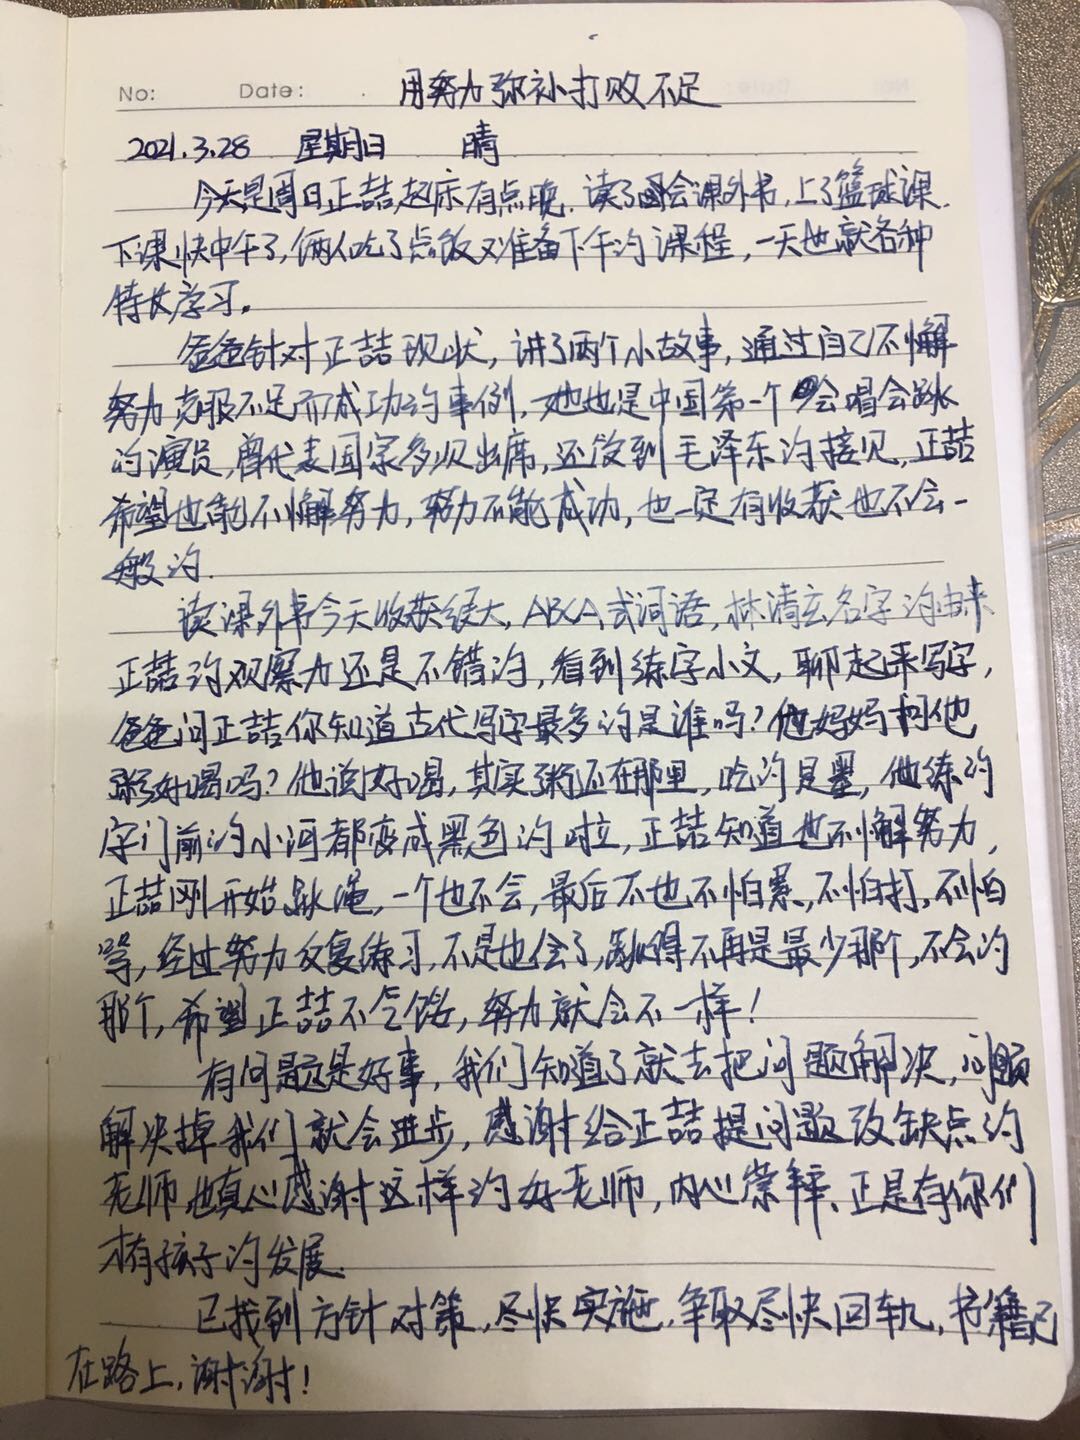 No: Date: 用努力弥补打败不足
2021.3.28 星期日 晴
今天是周日正喆起床有点晚.读了会课外书,上了篮球课.
下课快中午了,俩人吃了点饭又准备下午的课程,一天也就各种
特长学习。
爸爸针对正喆现状,讲了两个小故事,通过自己不懈
努力克服不足而成功的事例,她也是中国第一个会唱会跳
的演员,曾代表国家多次出席,还饺到毛泽东的接见,正喆
希望也能不懈努力,努力不能成功,也一定有收获也不会一
般的.
读课外书今天收获很大,ABCA式词语,林清玄名字的由来
正喆的观察力还是不错的,看到练字小文,聊起来写字,
爸爸问正喆你知道古代写字最多的是谁吗?他妈妈问他
粥好喝吗?他说好喝,其实粥还在那里,吃的是墨,他练的
字门前的小河都变成黑色的啦,正喆知道也不懈努力,
正喆刚开始跳绳,一个也不会,最后不也不怕累,不怕打,不怕
骂,经过努力反复练习,不是也会了,跳得不再是最少那个,不会的
那个,希望正喆不气馁,努力就会不一样!
有问题是好事,我们知道了就去把问题解决,问题
解决掉我们就会进步,感谢给正喆提问题改缺点的
老师,也真心感谢这样的好老师,内心崇拜、正是有你们
才有孩子的发展.
已找到方针对策,尽快实施,争取尽快回轨,书籍已
在路上,谢谢!